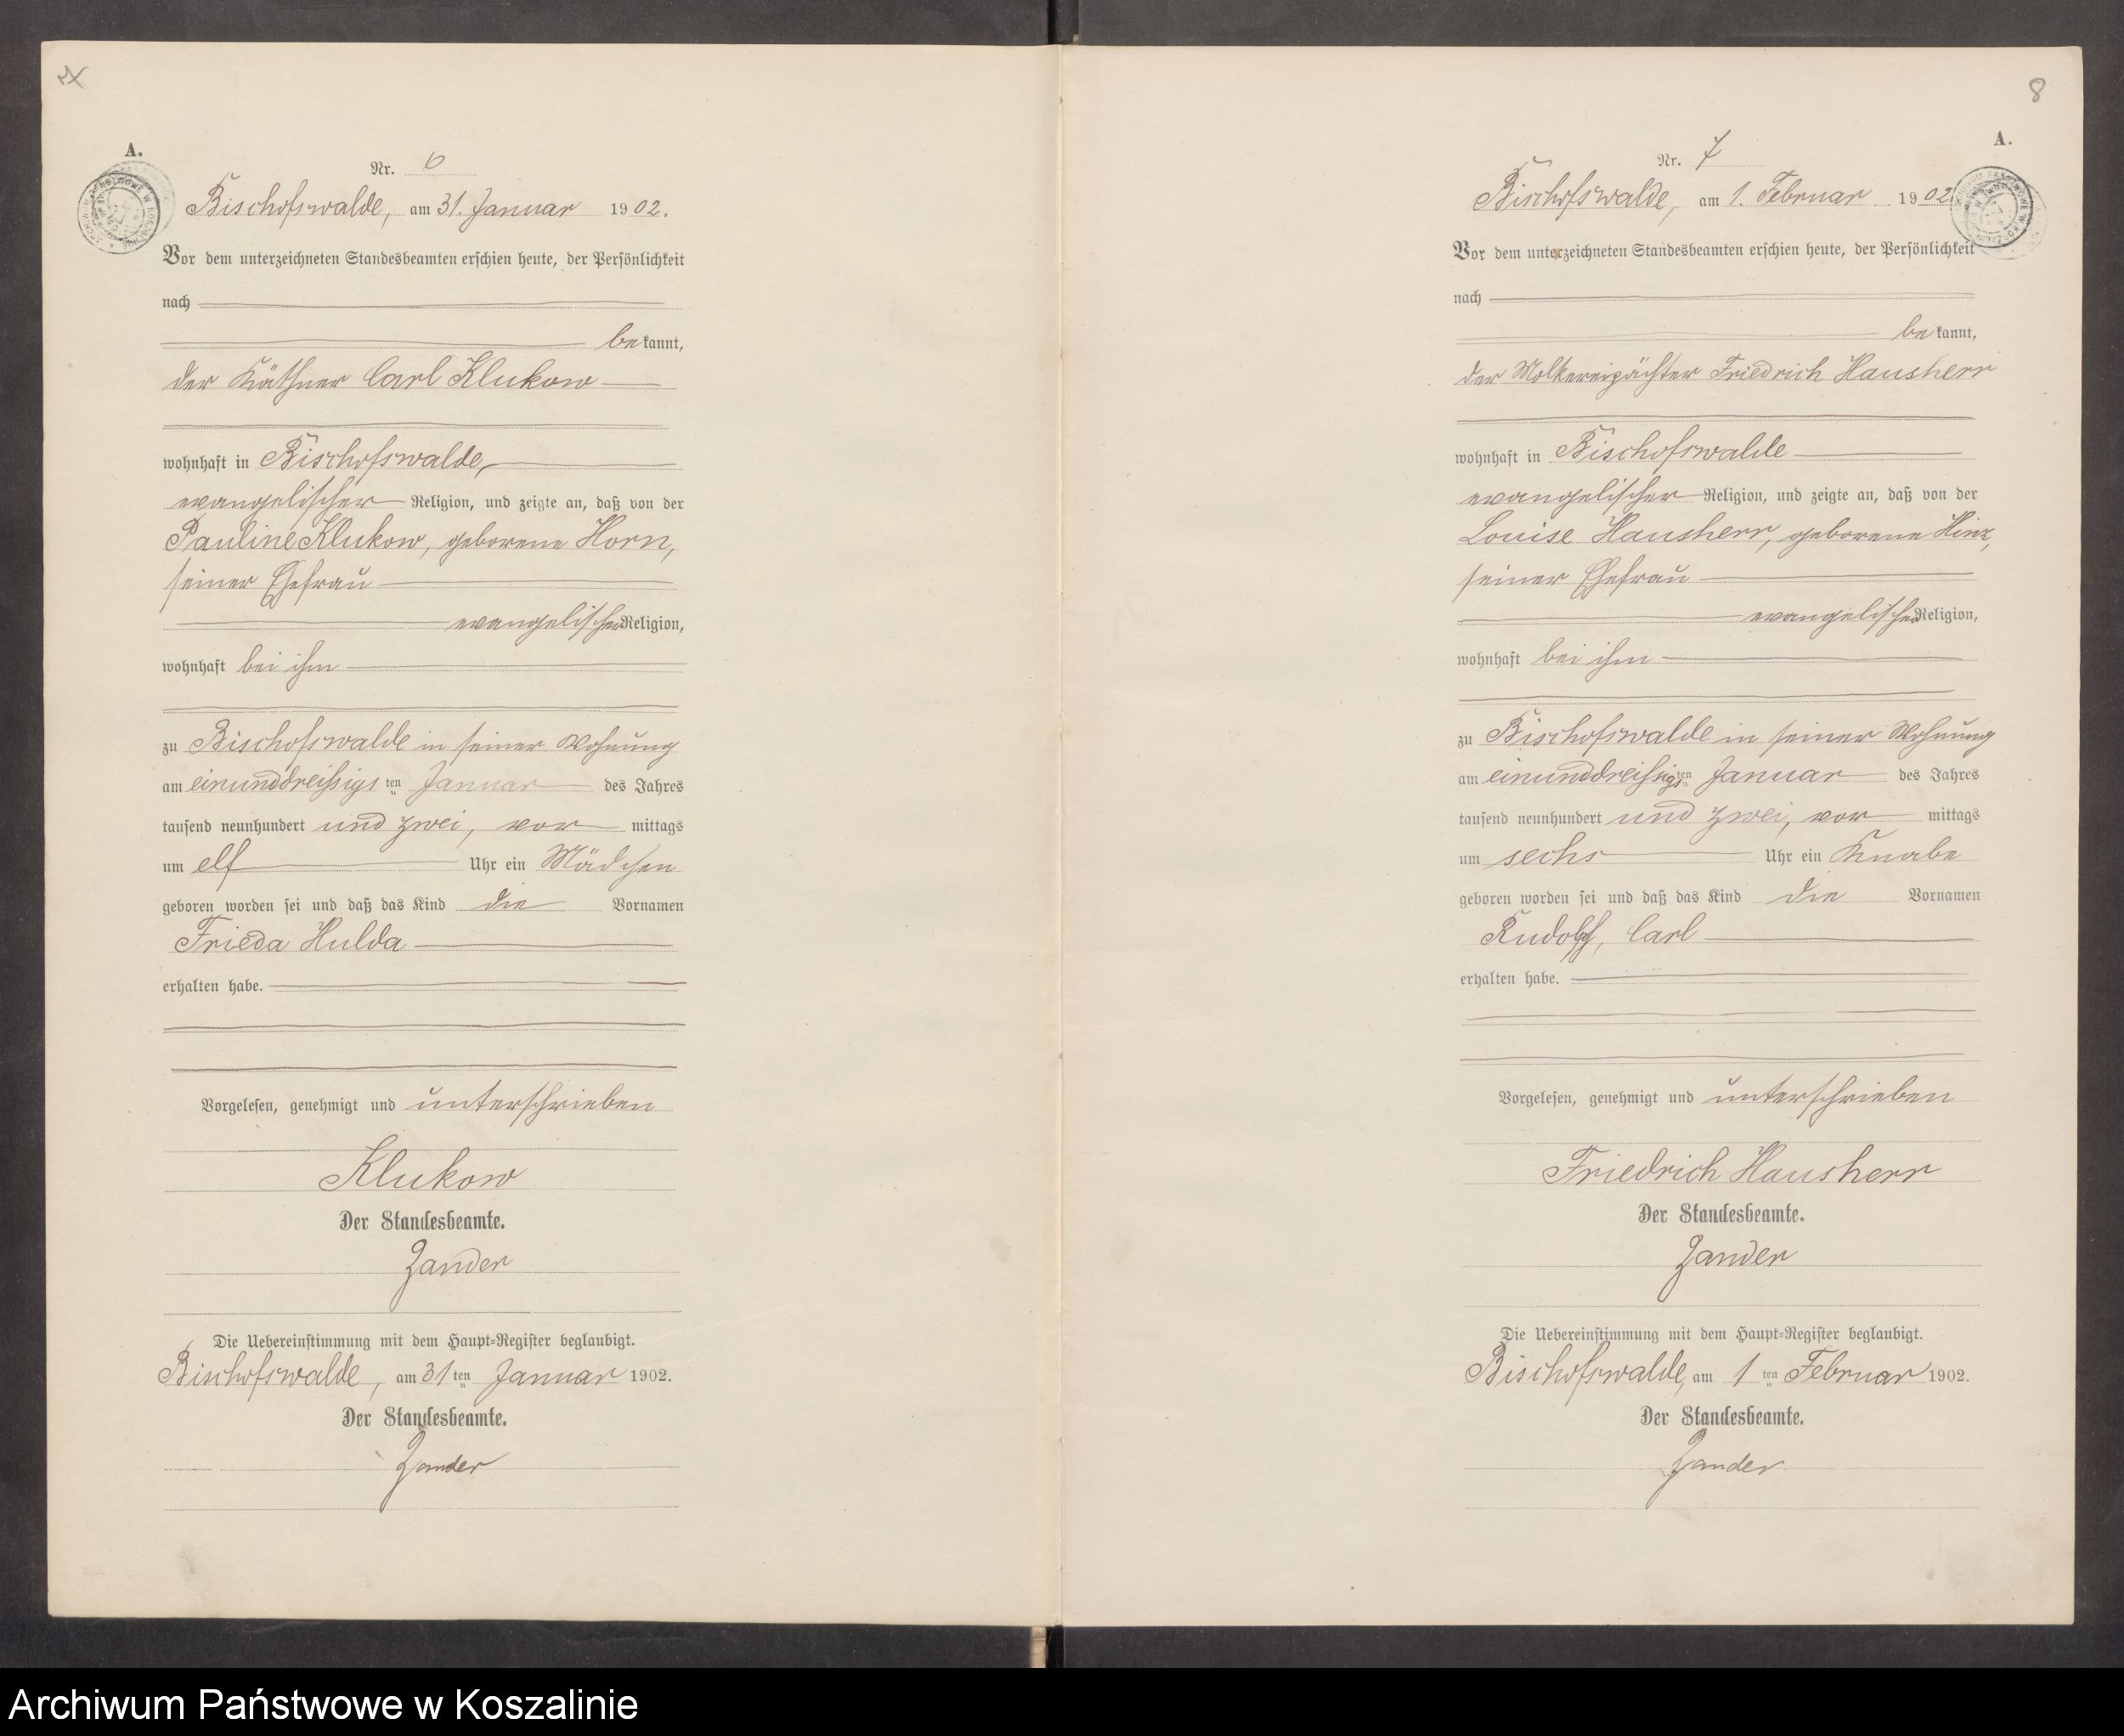 A.
Nr. 6
Bischofswalde, am 31. Januar 1902.
Vor dem unterzeichneten Standesbeamten erschien heute, der Persönlichkeit
nach
bekannt,
der Käthner Carl Klukow
wohnhaft in Bischofswalde,
evangelischer Religion, und zeigte an, daß von der
Pauline Klukow, geborene Horn,
seiner Ehefrau
evangelischer Religion,
wohnhaft bei ihm
zu Bischofswalde in seiner Wohnung
am einunddreißigsten Januar des Jahres
tausend neunhundert und zwei, vor mittags
um elf Uhr ein Mädchen
geboren worden sei und daß das Kind die Vornamen
Frieda Hulda
erhalten habe.
Vorgelesen, genehmigt und unterschrieben
Klukow
Der Standesbeamte.
Zander
Die Uebereinstimmung mit dem Haupt=Register beglaubigt.
Bischofswalde, am 31ten Januar 1902.
Der Standesbeamte.
Zander
8
A.
Nr. 7
Bischofswalde, am 1. Februar 1902
Vor dem unterzeichneten Standesbeamten erschien heute, der Persönlichkeit
nach
bekannt,
der Molkereipächter Friedrich Hausherr
wohnhaft in Bischofswalde
evangelischer Religion, und zeigte an, daß von der
Louise Hausherr, geborene Hinz,
seiner Ehefrau
evangelischer Religion,
wohnhaft bei ihm
zu Bischofswalde in seiner Wohnung
am einunddreißigsten Januar des Jahres
tausend neunhundert und zwei, vor mittags
um sechs Uhr ein Knabe
geboren worden sei und daß das Kind die Vornamen
Rudolf, Carl
erhalten habe.
Vorgelesen, genehmigt und unterschrieben
Friedrich Hausherr
Der Standesbeamte.
Zander
Die Uebereinstimmung mit dem Haupt=Register beglaubigt.
Bischofswalde, am 1ten Februar 1902.
Der Standesbeamte.
Zander
Archiwum Państwowe w Koszalinie